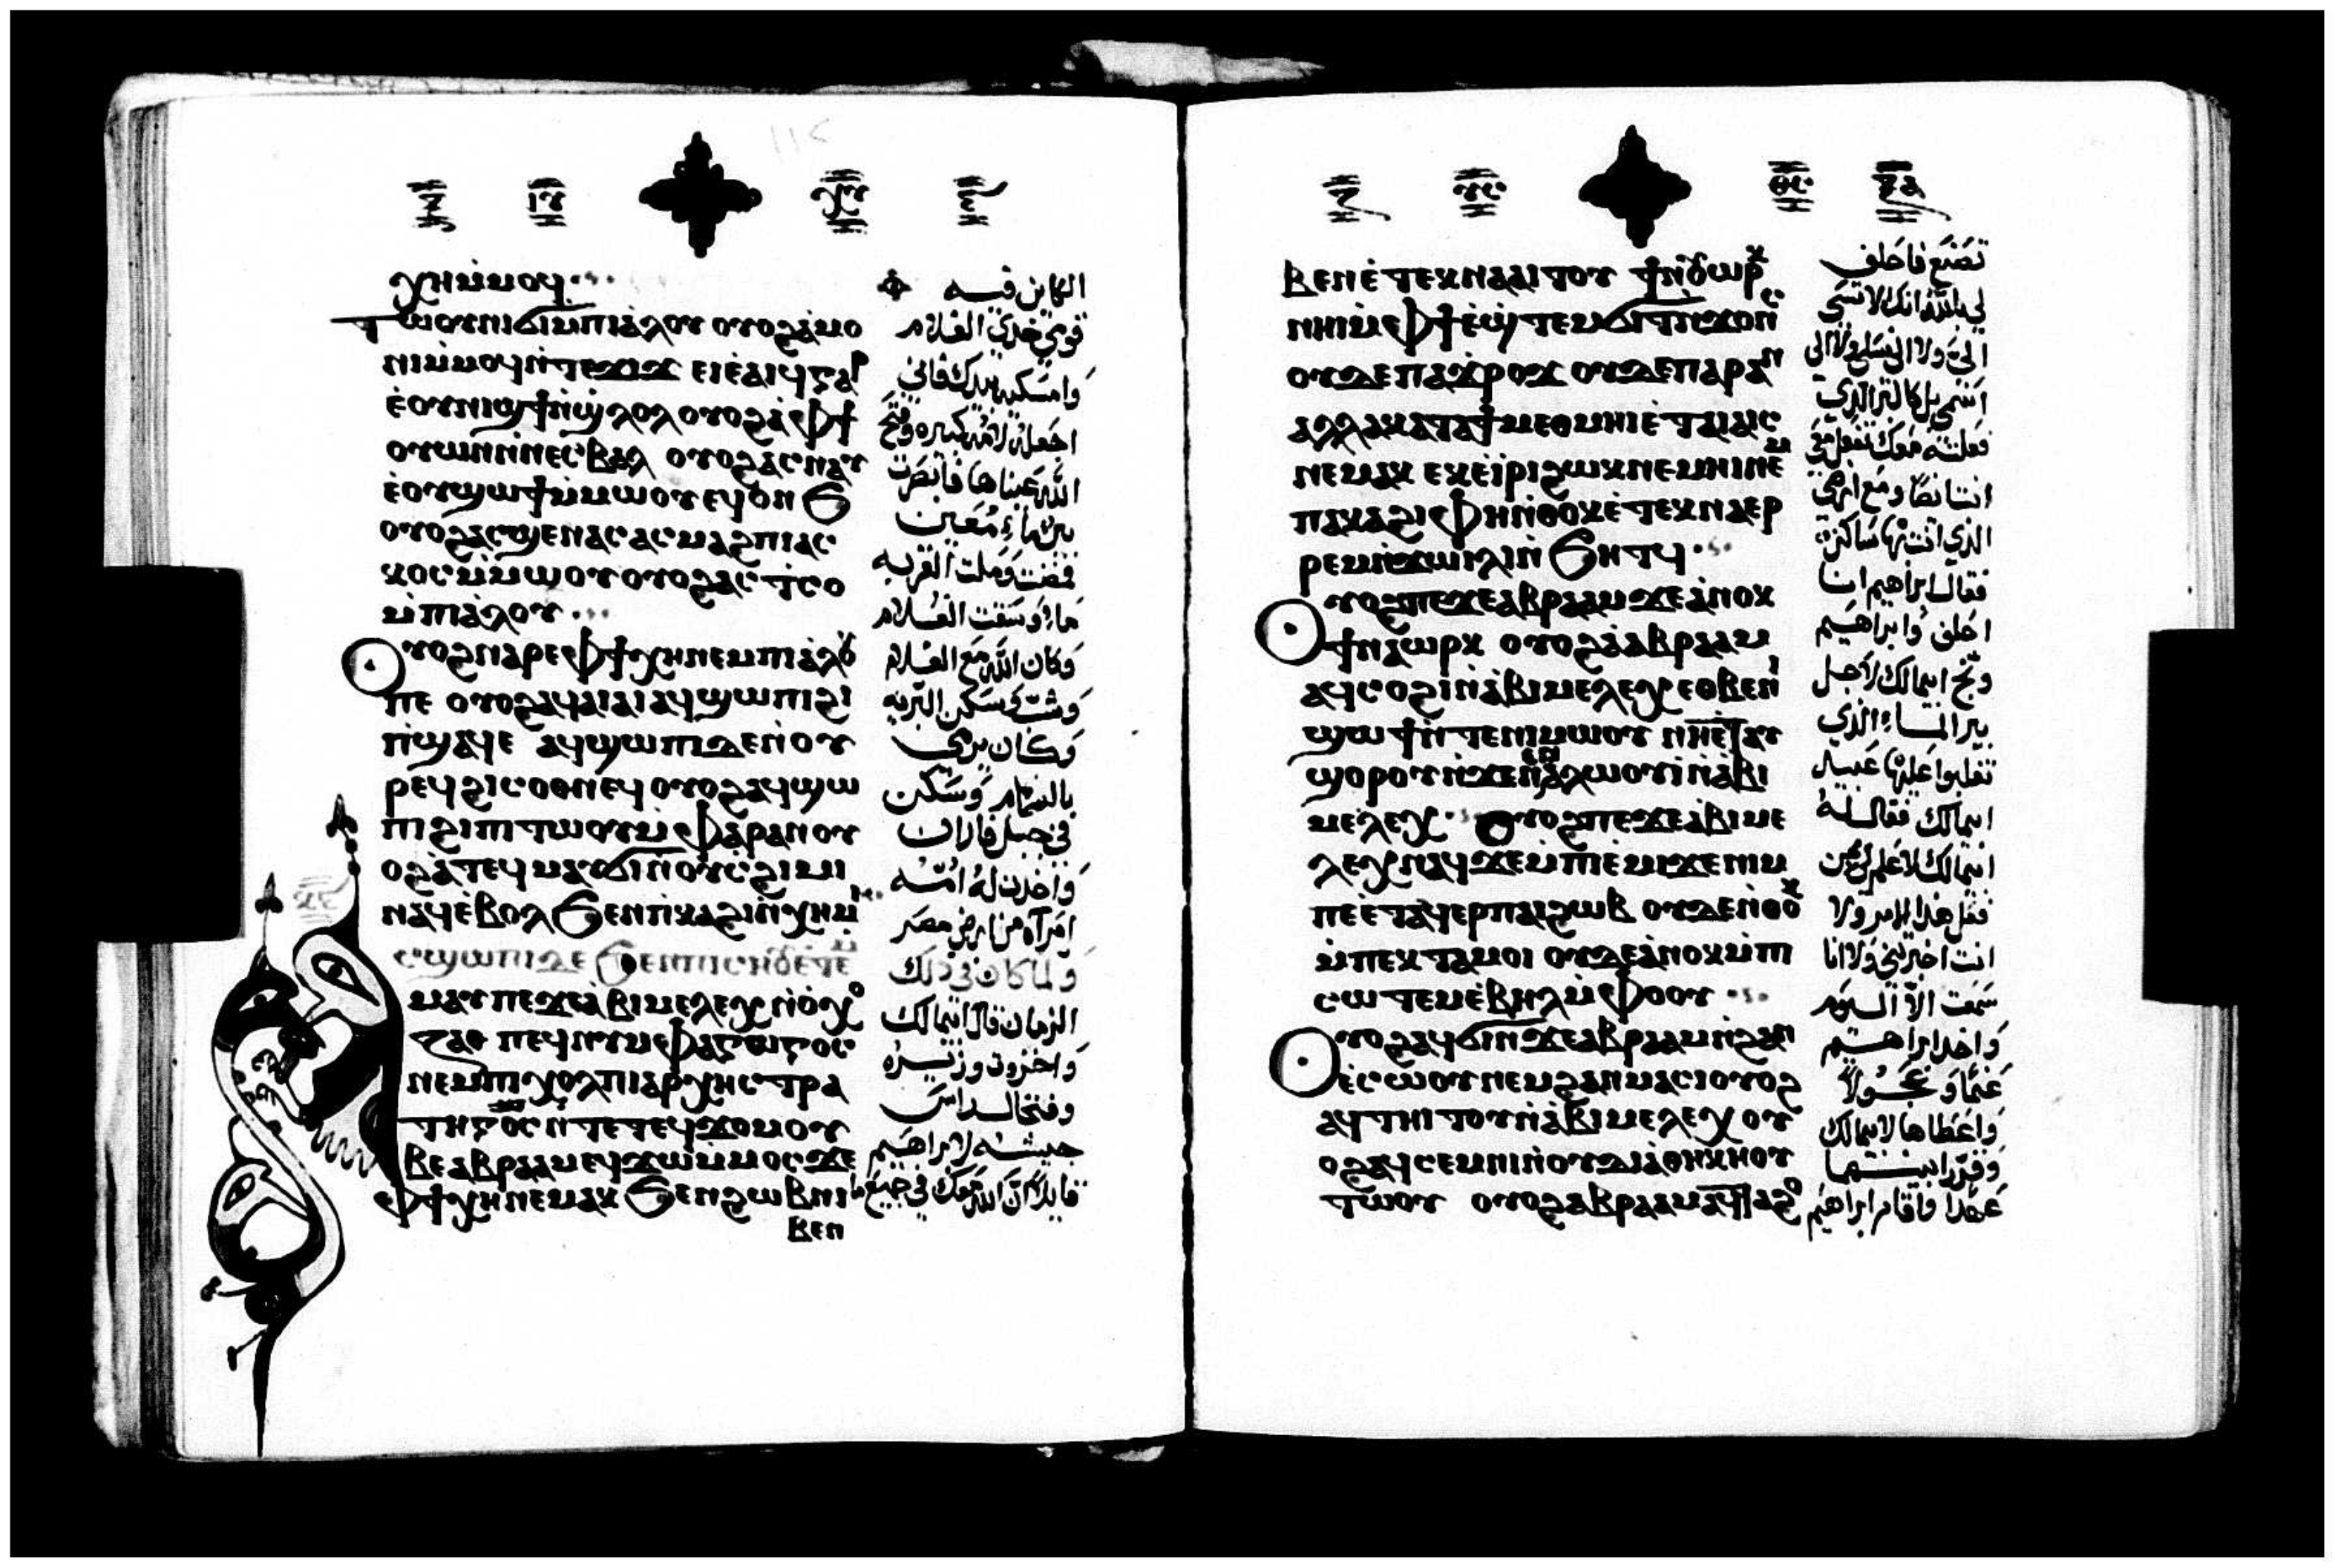 ⲭⲏⲙ̀ⲙⲟϥ
ⲧⲱⲟⲩⲛⲓϭⲓⲙ̀ⲡⲓⲁ̀ⲗⲟⲩ ⲟⲩⲟϩⲁ̀ⲙⲟ
ⲛⲓⲙ̀ⲙⲟϥⲛ̀ⲧⲉϫⲓϫ ⲉⲓⲉ̀ⲁⲓϥⲅⲁⲣ
ⲉ̀ⲟⲩⲛⲓϣϯⲛ̀ϣ̀ⲗⲟⲗ ⲟⲩⲟϩⲁ̀ⲫϯ
ⲟⲩⲱⲛⲛ̀ⲛⲉⲥⲃⲁⲗ ⲟⲩⲟϩⲁⲥⲛⲁⲩ
ⲉ̀ⲟⲩϣⲱϯⲙ̀ⲙⲱⲟⲩ ⲉϥⲟⲛϧ
ⲟⲩⲟϩⲁⲥϣⲉⲛⲁⲥ ⲁⲥⲙⲁϩⲡⲓⲁⲥ
ⲕⲟⲥⲙ̀ⲙⲱⲟⲩ ⲟⲩⲟϩⲁⲥⲧ̀ⲥⲟ
ⲙ̀ⲡⲓⲁ̀ⲗⲟⲩ
ⲟⲩⲟϩⲛⲁⲣⲉⲫϯⲭⲏⲛⲉⲙⲡⲓⲁ̀ⲗⲟⲩ
ⲡⲉ ⲟⲩⲟϩⲁϥⲁⲓⲁⲓ ⲁϥϣⲱⲡⲓϩⲓ
ⲡ̀ϣⲁϥⲉ ⲁϥϣⲱⲡⲓⲇⲉⲛ̀ⲟⲩ
ⲣⲉϥϩⲓⲥⲟⲑⲛⲉϥ ⲟⲩⲟϩⲁϥϣⲱ
ⲡⲓϩⲓⲡⲓⲧⲱⲟⲩⲙ̀ⲫⲁⲣⲁⲛ ⲟⲩ
ⲟϩⲁ̀ⲧⲉϥⲙⲁⲩϭⲓⲛ̀ⲟⲩⲥϩⲓⲙⲓ
ⲛⲁϥⲉ̀ⲃⲟⲗϧⲉⲛⲡ̀ⲕⲁϩⲓⲛ̀ⲭⲏⲙⲓ
ⲁⲥϣⲱⲡⲓⲇⲉϧⲉⲛⲡⲓⲥⲏⲟⲩⲉ̀ⲧⲉⲙ
ⲙⲁⲩ ⲡⲉϫⲉⲁ̀ⲃⲓⲙⲉⲗⲉⲭ ⲛ̀ⲟ̀ⲭⲟ
ⲍⲁⲑ ⲡⲉϥⲛⲩⲙⲫⲁⲅⲱⲅⲟⲥ
ⲛⲉⲙⲡⲓⲭⲟⲗ ⲡⲓⲁⲣⲭⲏⲥⲧⲣⲁ
ⲧⲏⲅⲟⲥⲛ̀ⲧⲉⲧⲉϥϫⲟⲙ ⲟⲩ
ⲃⲉⲁⲃⲣⲁⲁⲙ ⲉϥϫⲱⲙ̀ⲙⲟⲥϫⲉ
ⲫϯⲭⲏⲛⲉⲙⲁⲕ ϧⲉⲛϩⲱⲃⲛⲓ
ⲃⲉⲛ
الكاين فيه
قومي خدي الغلام
وامسكيه بيدك فاني
اجعله لامه كبيره وفتح
الله عيناها فابصرت
بير ماء معين
فمضت وملت القربه
ماء وسقت الغلام
وكان الله مع الغلام
وشب وسكن البريه
وكان يرمي
بالسهام وسكن
في جبل فاران
واخدت له امه
امراه من ارض مصر
ولما كان في ذلك
الزمان قال ابيمالك
واخزوت وزيره
وفتخال راس
جيشه لابراهيم
قايلا ان الله معك في جميع ما
ⲃⲉⲛ ⲉ̀ⲧⲉⲕⲛⲁⲁⲓⲧⲟⲩ ϯⲛⲟⲩ ⲱⲣⲕ
ⲛⲏⲓⲙ̀ⲫϯ ⲉ̀ϣ̀ⲧⲉⲙϭⲓⲧϫⲟⲛⲥ
ⲟⲩⲇⲉⲡⲁϫ̀ⲣⲟϫ ⲟⲩⲇⲉⲡⲁⲣⲁⲛ
ⲁⲗⲗⲁⲕⲁⲧⲁϯⲙⲉⲑⲙⲏⲓ ⲉ̀ⲧⲁⲓⲁⲓⲥ
ⲛⲉⲙⲁⲕ ⲉⲕⲉⲓ̀ⲣⲓϩⲱⲕⲛⲉⲙⲏⲓ ⲛⲉⲙ
ⲡⲁⲕⲁϩⲓ ⲫⲏⲛ̀ⲑⲟⲕⲉ̀ⲧⲉⲕⲛⲁⲉⲣ
ⲣⲉⲙⲛ̀ϫⲱⲓⲗⲓⲛ̀ϧⲏⲧϥ
ⲟⲩⲟϩⲡⲉϫⲉⲁⲃⲣⲁⲁⲙ ϫⲉⲁ̀ⲛⲟⲕ
ϯⲛⲁⲱⲣⲕ ⲟⲩⲟϩⲁ̀ⲁⲃⲣⲁⲁⲙ
ⲁϥⲥⲟϩⲓⲛ̀ⲁ̀ⲃⲓⲙⲉⲗⲉⲭ ⲉⲑⲃⲉⲛⲓ
ϣⲱϯⲛ̀ⲧⲉⲛⲓⲙⲱⲟⲩ ⲛⲏⲉ̀ⲧⲁⲩ
ϣⲟⲣⲟⲩⲛ̀ϫⲉⲛⲉⲛⲁ̀ⲗⲱⲟⲩⲓ̀ⲛ̀ⲁ̀ⲃⲓ
ⲙⲉ̀ⲗⲉⲭ ⲟⲩⲟϩⲡⲉϫⲉⲁ̀ⲃⲓⲙⲉ
ⲗⲉⲭⲛⲁϥ ϫⲉⲙ̀ⲡⲓⲉ̀ⲙⲓϫⲉⲛⲓⲙ
ⲡⲉⲉ̀ⲧⲁϥⲉⲣⲡⲁⲓϩⲱⲃ ⲟⲩⲇⲉⲛ̀ⲑⲟⲕ
ⲙ̀ⲡⲉⲕⲧⲁⲙⲟⲓ ⲟⲩⲇⲉⲁ̀ⲛⲟⲕⲙ̀ⲡⲓ
ⲥⲱⲧⲉⲙⲉ̀ⲃⲏⲗⲙ̀ⲫⲟⲟⲩ
ⲟⲩⲟϩⲁϥϭⲓⲛ̀ϫⲉⲁⲃⲣⲁⲁⲙⲛ̀ϩⲁⲛ
ⲉ̀ⲥⲱⲟⲩ ⲛⲉⲙϩⲁⲛⲙⲁⲥⲓ ⲟⲩⲟϩ
ⲁϥⲧⲏⲓⲧⲟⲩⲛ̀ⲁ̀ⲃⲓⲙⲉⲗⲉⲭ ⲟⲩ
ⲟϩⲁϥⲥⲉⲙⲛⲓⲛ̀ⲟⲩⲇⲓⲁⲑⲏⲕⲏⲟⲩ
ⲧⲱⲟⲩ ⲟⲩⲟϩⲁⲃⲣⲁⲁⲙⲁϥⲧⲁϩⲟ
تصنع فاحلف
لي بالله انك لا تسي
الي ولا الى نسلي ولا الى
اسمي بل كالبر الذي
فعلته معك تفعل معي
انت ايضا ومع ارضي
الذي انت بها ساكن
فقال ابراهيم انا
احلف وابراهيم
وبخ ابيمالك لاجل
بير الماء الذي
تغلبوا عليها عبيد
ابيمالك فقال له
ابيمالك لا علم لي من
فعل هذا الامر ولا
انت اخبرتني ولا انا
سمعت الا اليوم
واخد ابراهيم
غنما وعجولا
واعطاها لابيمالك
وقررا بينهما
عهدا واقام ابراهيم